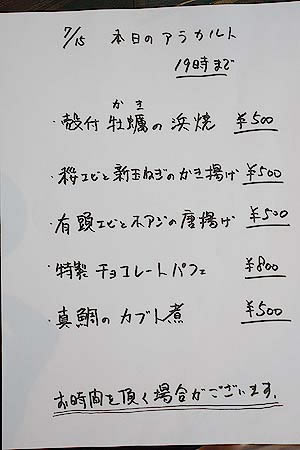 7/15 本日のアラカルト
19時まで
かき
・殻付 牡蠣の浜焼 ¥500
・桜エビと新玉ねぎのかき揚げ ¥500
・有頭エビと不アジの唐揚げ ¥500
・特製チョコレートパフェ ¥800
・真鯛のカブト煮 ¥500
お時間を頂く場合がございます。